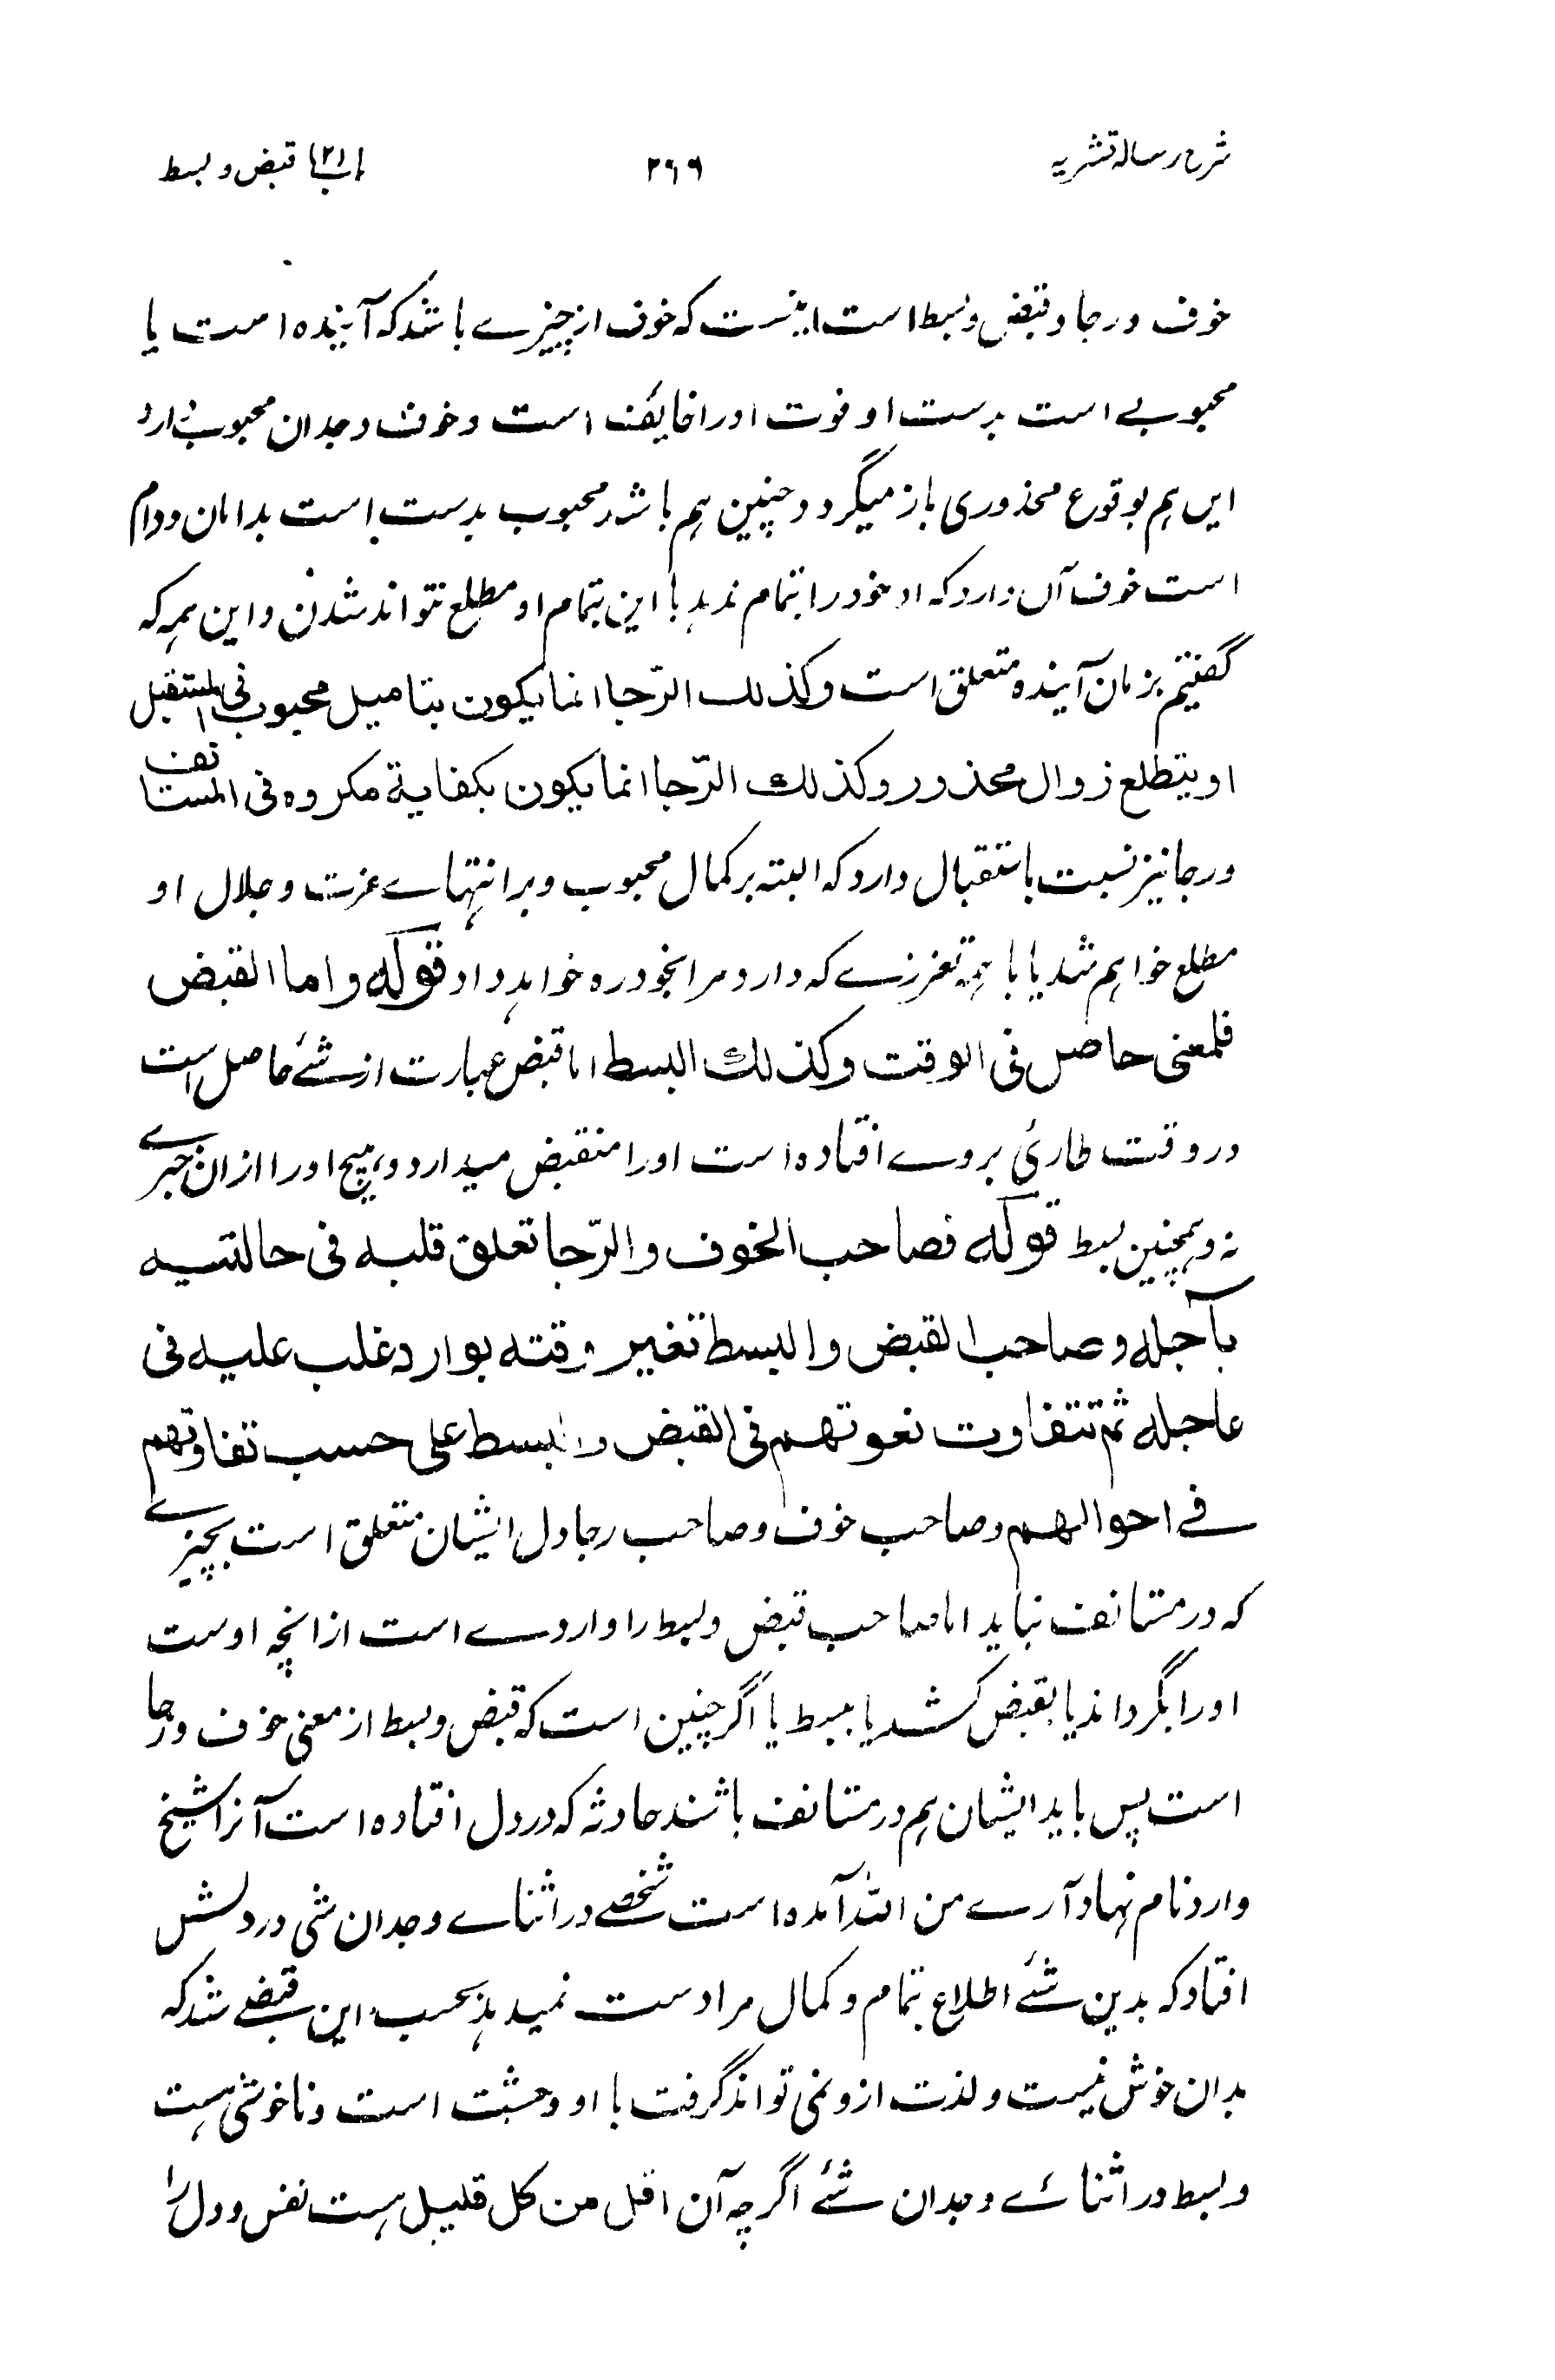 شرح رسالہ قشریہ ۲۶۶ باب (۲۱) قبض و بسط
خوف و رجا و قبض و بسط است اینست که خوف از چیزے باشد که آینده است یا
محبوبے است بدست او فوت او را خایف است و خوف وجدان محبوب دارد
ایں ہم بوقوع محذوری باز میگردد و چنین ہم باشد محبوب بدست است بدامان ودام
است خوف آں دارد که او خود را بتمام ندہد با این بتمام او مطلع نتواند شدن و این ہمہ کہ
گفتیم بزمان آینده متعلق است وکذلك الرّجا انما یکون بتامیل محبوب فی المستقبل
او یتطلع زوال محذور وکذلك الرّجا انما یکون بکفایة مکروه فی المستانف
و رجا نیز نسبت باستقبال دارد که البته بر کمال محبوب و بر انتہاے عزت و جلال او
مطلع خواہم شد یا با ہمہ تعززے که دارد مرا بخود ره خواہد داد قوله واما القبض
فلمعنی حاصل فی الوقت وکذلك البسط اما قبض عبارت از شئے حاصل است
در وقت طارئ بروے افتاده است او را منقبض میدارد و ہیچ او را ازان خبرے
نه و ہمچنین بسط قوله فصاحب الخوف والرّجا تعلق قلبه فی حالتیه
بآجله وصاحب القبض والبسط تغیر وقته بوارد غلب علیه فی
عاجله ثم تتفاوت نعوتهم فی القبض والبسط علی حسب تفاوتهم
فے احوالهم و صاحب خوف و صاحب رجا دل ایشان متعلق است بچیزے
که در مستانف نیاید اما صاحب قبض و بسط را واردے است ازانچه اوست
او را بگرداند یا بقبض کشد یا ببسط یا اگر چنین است که قبض و بسط از معنی خوف و رجا
است پس باید ایشان ہم در مستانف باشند حادثه که در دل افتاده است آنرا شیخ
وارد نام نہاد آرے من اللہ آمده است شخصے در اثناے وجدان شی در دلش
افتاد که بدین شئے اطلاع بتمام و کمال مرا دست نمیدہد بحسب این قبضے شد که
بدان خوش نیست و لذت ازو نمی تواند گرفت با او وحشت است و ناخوشی ہست
و بسط در اثنائے وجدان شئے اگرچه آن اقل من کل قلیل ہست نفس و دل را